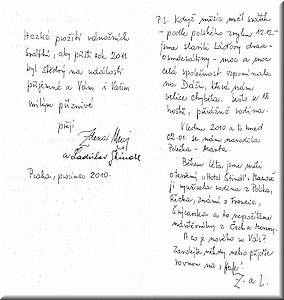 Hezké prožití vánočních
svátků, aby příští rok 2011
byl štědrý na události
příjemné a Vám i Vašim
milým příznivě
přejí
a Ladislav Štindl
Praha, prosinec 2010.
P.S. Když měsíc měl svátek
- podle polského zvyku 12.12 -
jsme slavili Láďovy dvaa-
osmdesátiny - moc a moc
celá společnost vzpomínala
na Dášu, které nám
velice chyběla. Sešlo se 18
hostů, převážně rodina.
V lednu 2010 a to hned
02.01. se nám narodila
- Marta.
Během léta jsme měli
otevřený "Hotel Štindl".
ji využívala rodina z Polska,
Řecka, známí z Francie,
Švýcarska a to nepočítáme
návštěvníky z Čech a Moravy.
A co je nového u Vás?
Zavolejte někdy nebo přijeďte
rovnou na "kafe".
Z. a L.